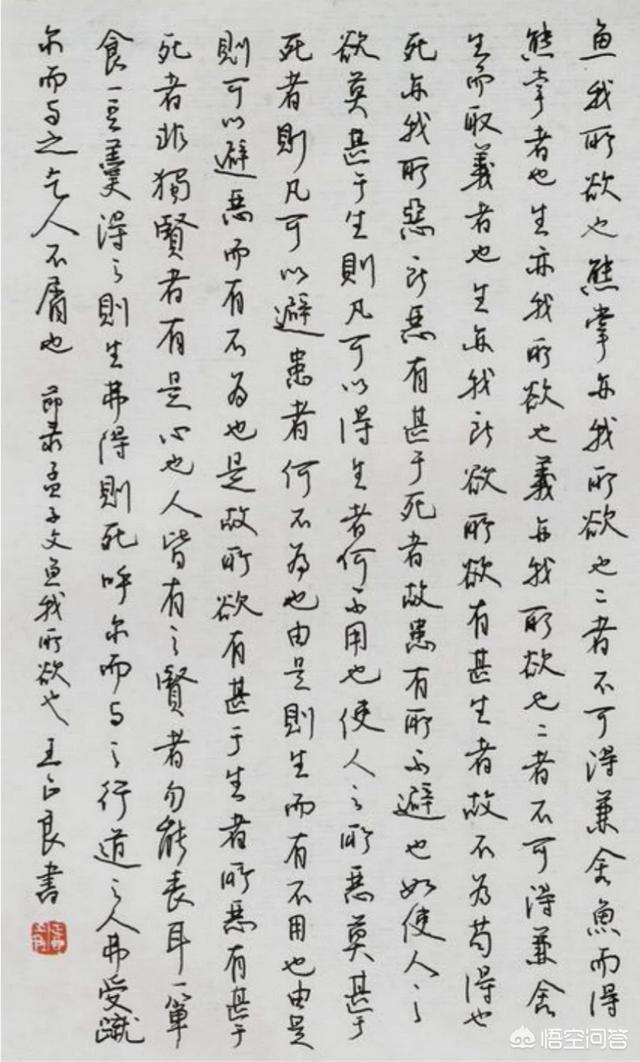 魚我所欲也熊掌亦我所欲也二者不可得兼舍魚而得
熊掌者也生亦我所欲也義亦我所欲也二者不可得兼舍
生而取義者也生亦我所欲所欲有甚生者故不為苟得也
死亦我所惡所惡有甚于死者故患有所不避也如使人之
欲莫甚于生則凡可以得生者何不用也使人之所惡莫甚于
死者則凡可以避患者何不為也由是則生而有不用也由是
則可以避患而有不為也是故所欲有甚于生者所惡有甚于
死者非獨賢者有是心也人皆有之賢者勿能喪耳一簞
食一豆羹得之則生弗得則死呼尔而与之行道之人弗受蹴
尔而与之乞人不屑也 節录孟子文魚我所欲也 王正良書
悟空问答